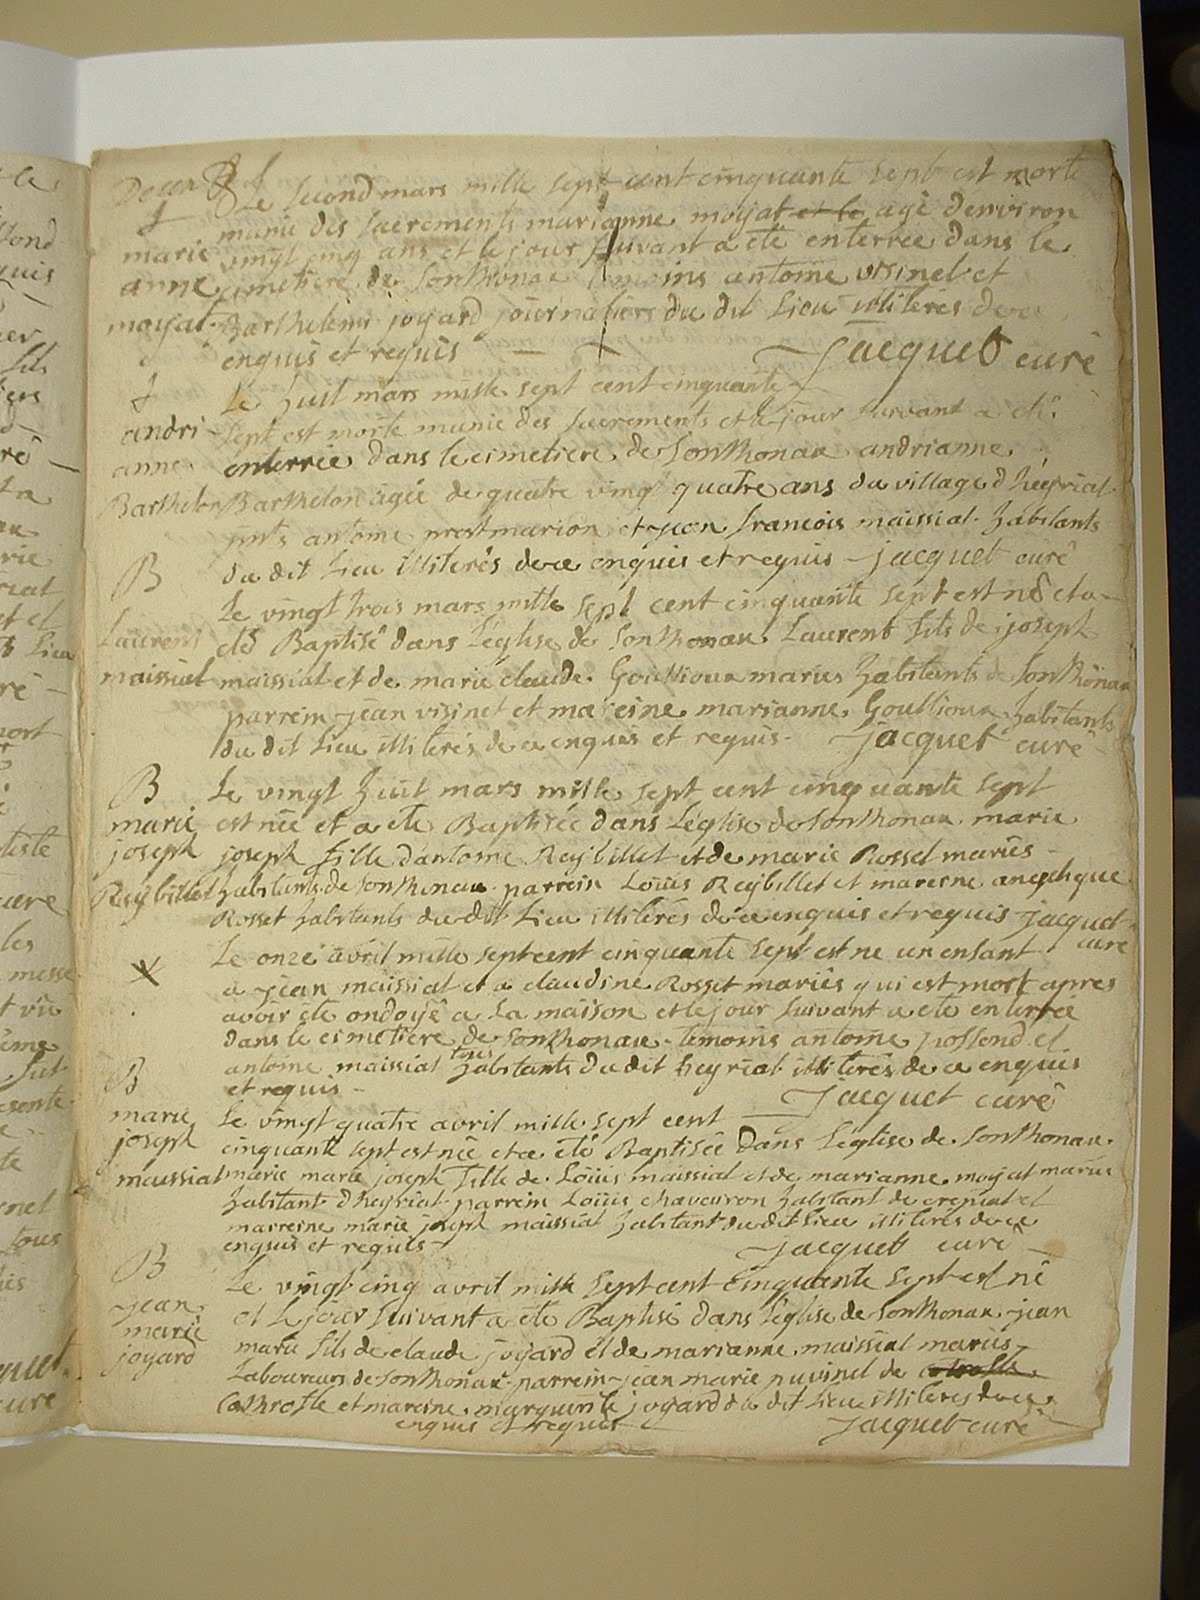 Le second mars mille sept cent cinquante sept est morte
munie des sacrements marianne moyat et le agé denviron
marie vingt cinq ans et le jour suivant a eté enterrée dans le
anne cimetiere de Sonthonax temoins antoine visinet et
moyat Barthelemi joyard journaliers du dit Lieu illiterés de ce
enquis et requis Jacquet curé
Le huit mars mille sept cent cinquante
andri sept est morte munie des sacrements et le jour suivant a eté
anne enterrée dans le cimetiere de Sonthonax andrianne
Barthelon Barthelon agée de quatre vingt quatre ans du village d'heyriat
antoine marion et jean francois maissiat habitants
du dit Lieu illiterés de ce enquis et requis jacquet curé
B
Le vingt trois mars mille sept cent cinquante sept est né et a
Laurent eté Baptisé dans L'eglise de Sonthonax Laurent fils de joseph
maissiat maissiat et de marie claude Gouilloux mariés habitants de Sonthonax
parrein jean visinet et mareine marianne Gouilloux habitants
du dit Lieu illiterés de ce enquis et requis jacquet curé
B Le vingt huit mars mille sept cent cinquante sept
marie est née et a eté Baptisée dans L'eglise de Sonthonax marie
joseph joseph fille d'antoine Reybillet et de marie Rosset mariés
Reybillet habitants de Sonthonax parrein Loüis Reybillet et mareine angelique
Rosset habitants du dit Lieu illiterés de ce enquis et requis jacquet
curé
Le onze avril mille sept cent cinquante sept est ne un enfant
a jean maissiat et a claudine Rosset mariés qui est mort apres
avoir eté ondoyé a La maison et le jour suivant a eté enterrée
dans le cimetiere de Sonthonax temoins antoine et
antoine maissiat tous habitants du dit heyriat illiterés de ce enquis
B et requis Jacquet curé
marie Le vingt quatre avril mille sept cent
joseph cinquante sept est née et a eté Baptisée dans L'eglise de Sonthonax
maissiat marie marie joseph fille de Loüis maissiat et de marianne moyat mariés
habitant d'heyriat parrein Loüis chavavron habitant de crepiat et
marreine marie joseph maissiat habitant du dit lieu illiterés de ce
enquis et requis jacquet curé
B Le vingt cinq avril mille sept cent cinquante sept est né
jean et le jour suivant a eté Baptisé dans L'eglise de Sonthonax jean
marie marie fils de claude joyard et de marianne maissiat mariés
joyard Laboureurs de Sonthonax parrein jean marie puvinel de
et mareine marguerite joyard du dit Lieu illiterés de ce
enquis et requis jacquet curé